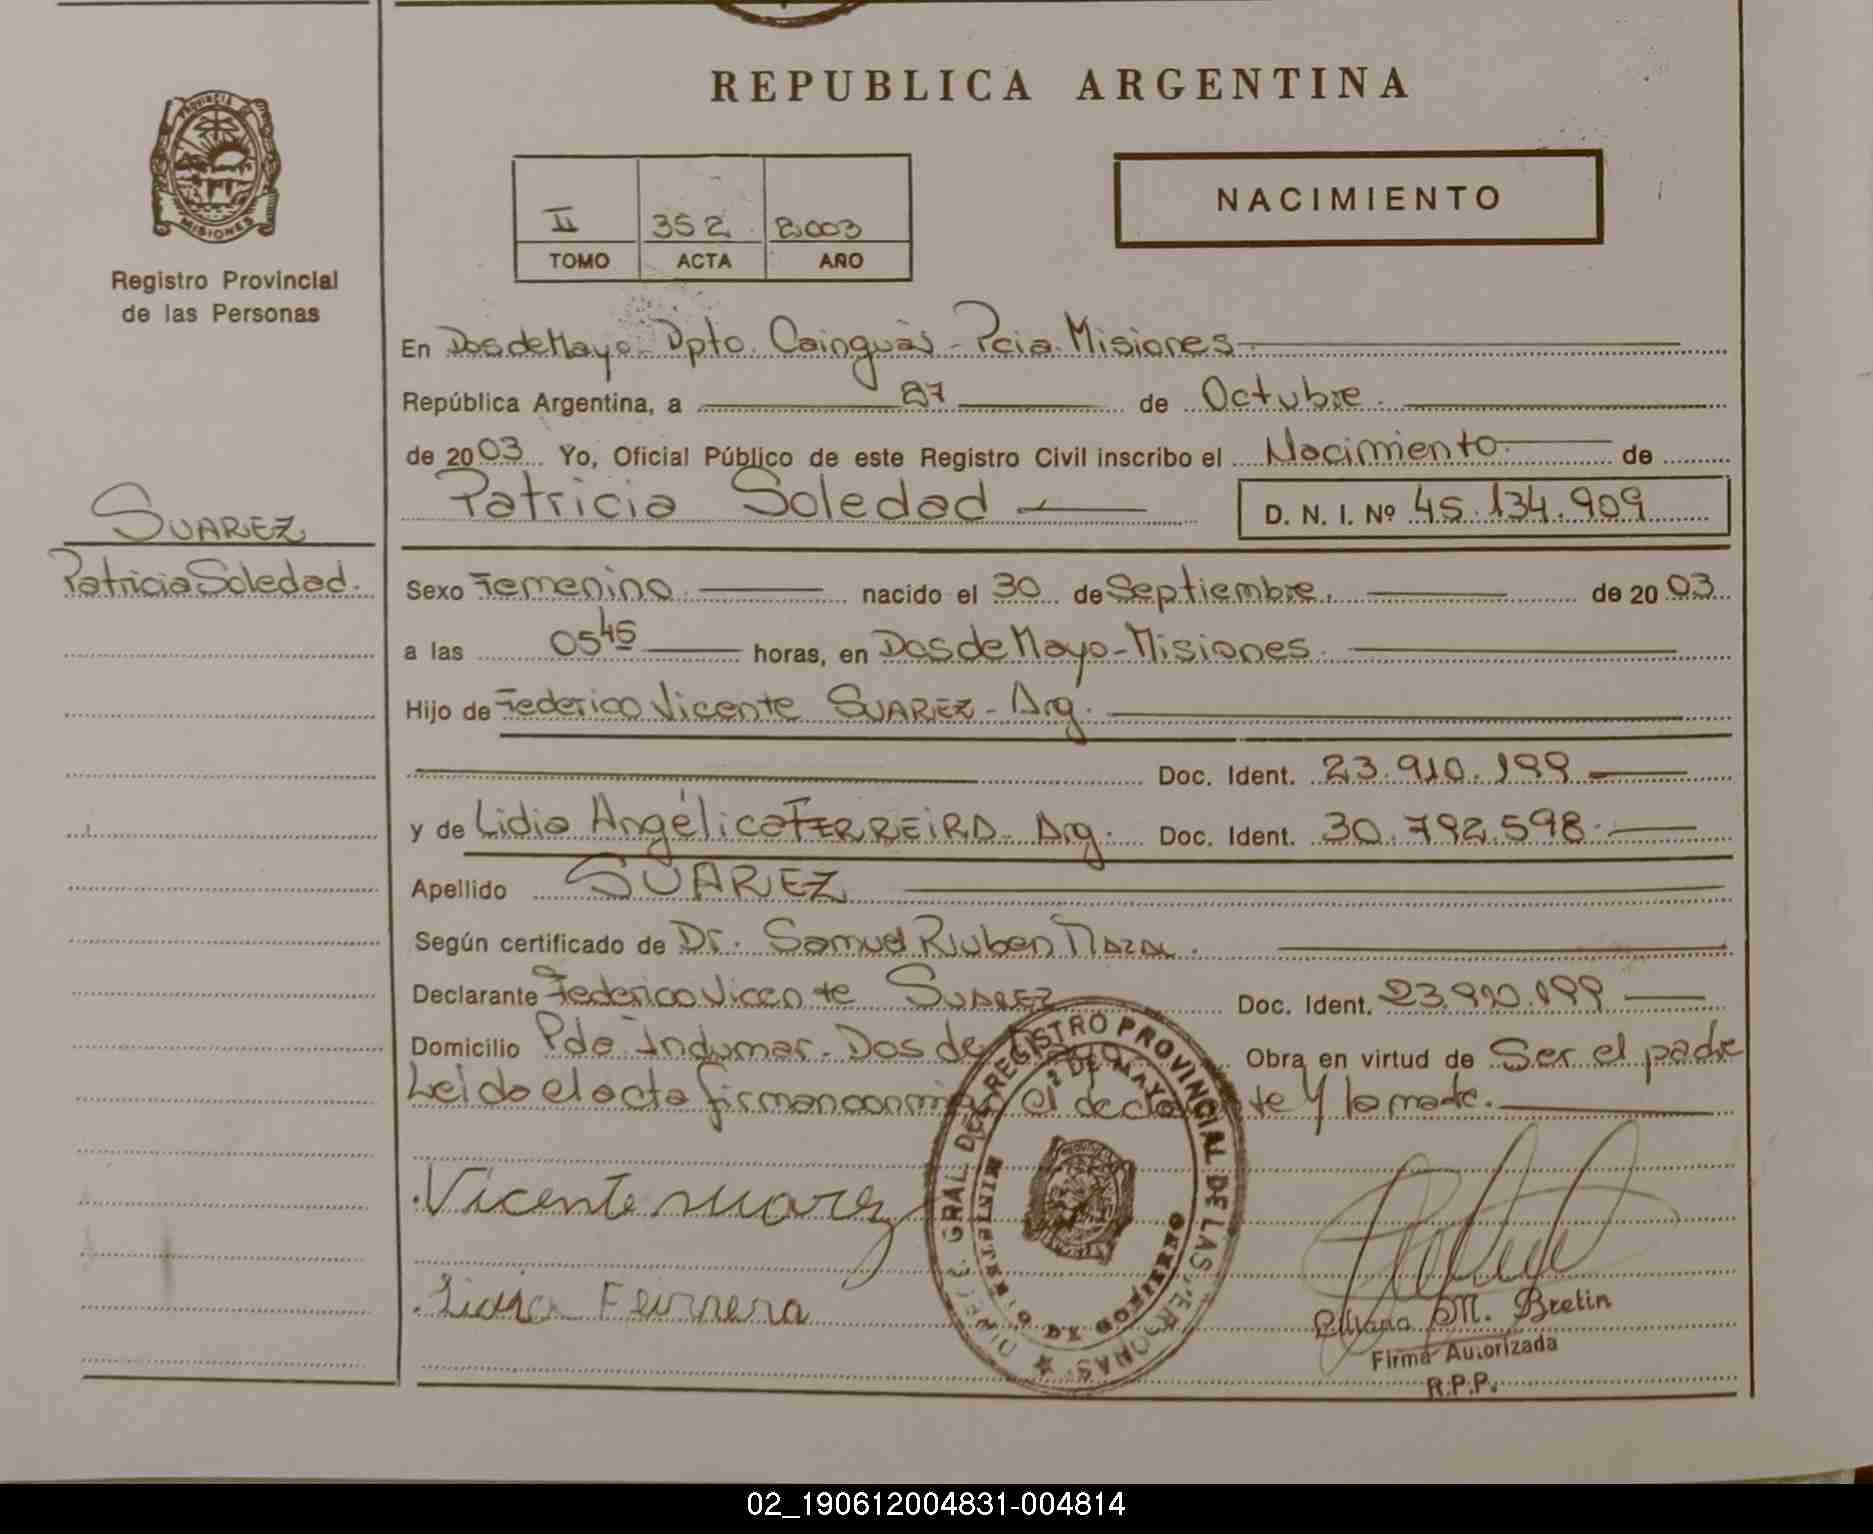 REPUBLICA ARGENTINA
PROVINCIA DE
MISIONES
Registro Provincial
de las Personas
II 352 2003
TOMO ACTA AÑO
NACIMIENTO
En Dos de Mayo - Dpto. Cainguás - Pcia. Misiones
República Argentina, a 27 de Octubre.
de 2003. Yo, Oficial Público de este Registro Civil inscribo el Nacimiento de
Patricia Soledad D. N. I. Nº 45.134.909
SUAREZ
Patricia Soledad.
Sexo Femenino nacido el 30 de Septiembre. de 2003
a las 05 45 horas, en Dos de Mayo - Misiones.
Hijo de Federico Vicente SUAREZ - Arg.
Doc. Ident. 23.910.199
y de Lidia Angélica FERREIRA - Arg. Doc. Ident. 30.792.598.
Apellido SUAREZ
Según certificado de Dr. Samuel Ruben
Declarante Federico Vicente SUAREZ Doc. Ident. 23.910.199
Domicilio Pde. Indumar - Dos de Obra en virtud de Ser el padre
Leido el acta firman conmigo el declarante y la madre.
Vicente suarez
Lidia Ferrera
DIREC. GRAL. DEL REGISTRO PROVINCIAL DE LAS PERSONAS
2 DE MAYO
MINISTERIO DE GOBIERNO
Liliana M. Bretin
Firma Autorizada
R.P.P.
02_190612004831-004814